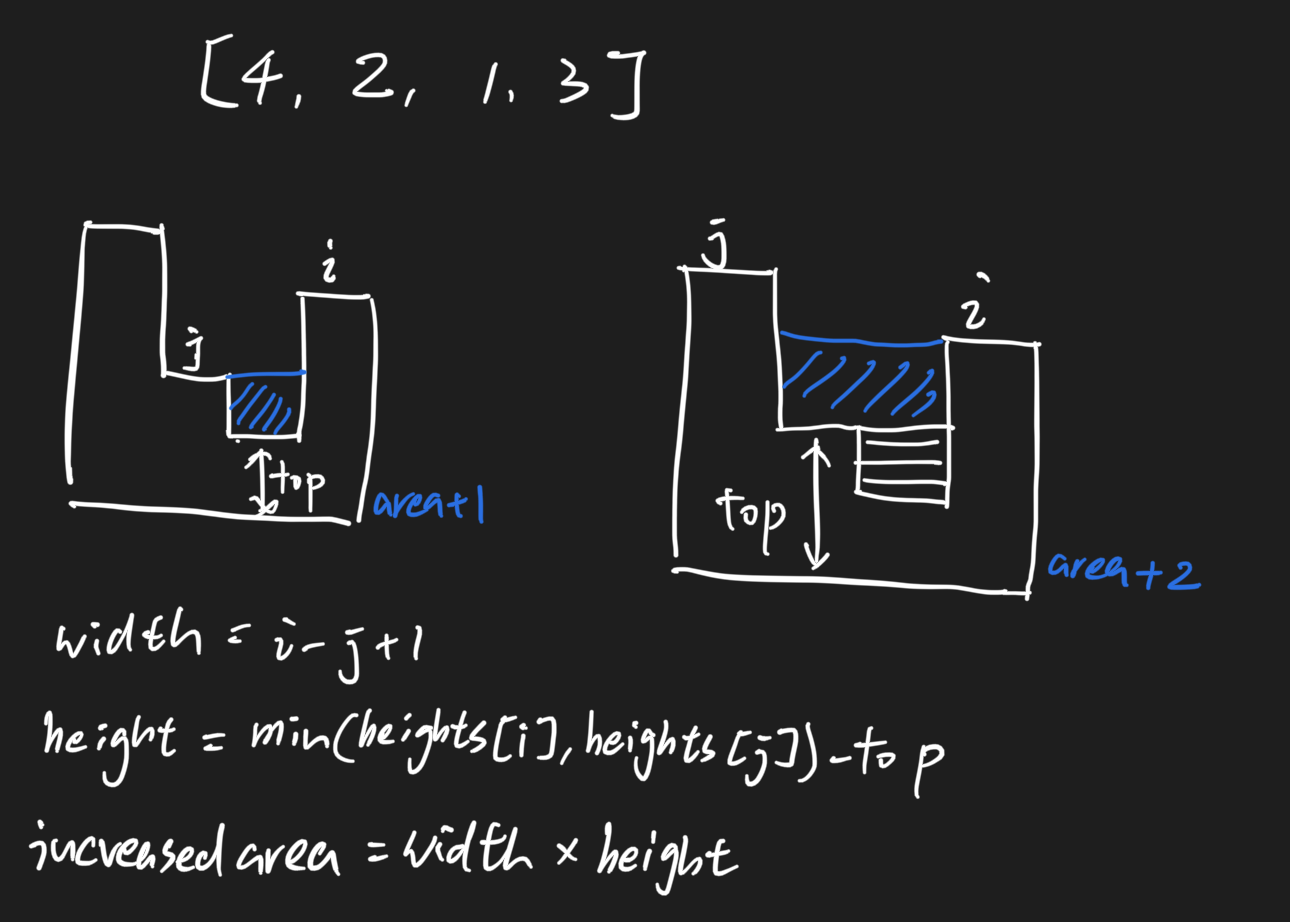 [4, 2, 1, 3]
i
j
top
area+1
j
i
top
area+2
width = i-j+1
height = min(heights[i], heights[j])-top
increased area = width × height